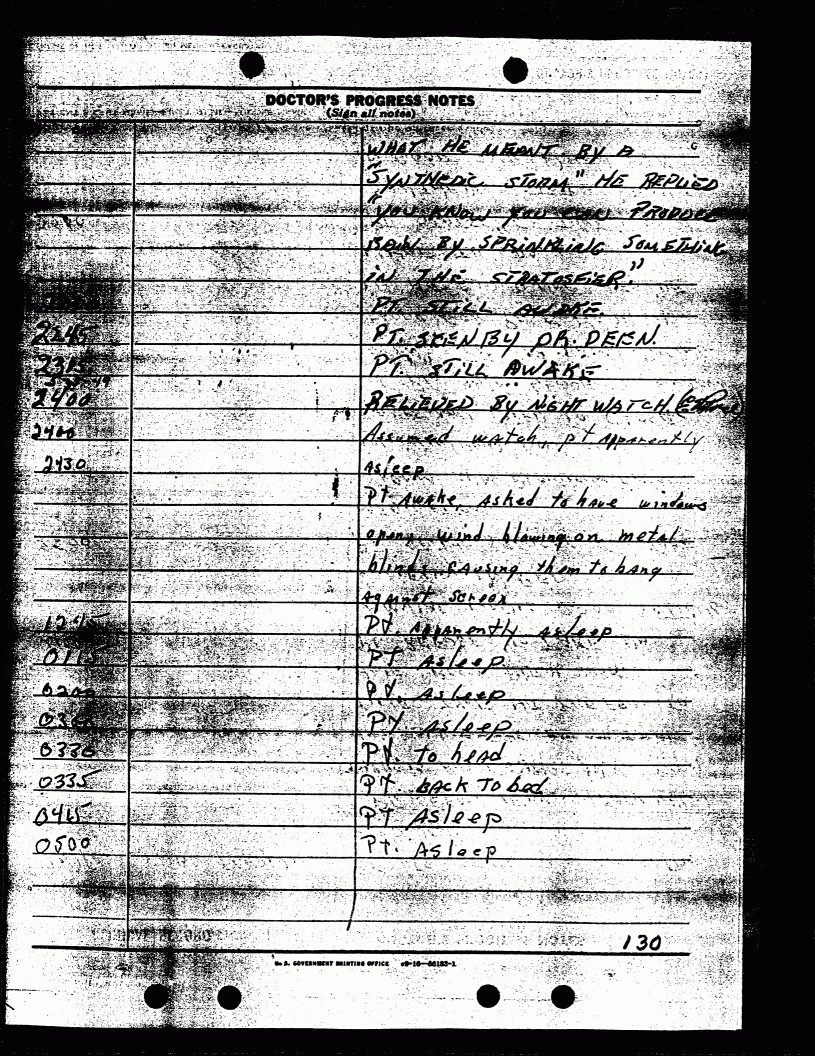 DOCTOR'S PROGRESS NOTES
(Sign all notes)
WHAT HE MEANT BY A
"SYNTHEDIC STORM" HE REPLIED
"YOU KNOW YOU CAN PRODUCE
RAIN BY SPRINKLING SOMETHING
IN THE STRATOSFIER."
PT. STILL AWAKE.
2245 PT. SEEN BY DR. DEEN.
2315 PT. STILL AWAKE
2400 RELIEVED BY NIGHT WATCH
2400 Assumed watch, pt apparently
2430 Asleep
Pt Awake, Asked to have windows
open, wind blowing on metal
blinds causing them to bang
against screen
1245 Pt. apparently asleep
0115 PT Asleep
0200 Pt. Asleep
0300 PT asleep
0330 Pt. to head
0335 Pt BACK To bed
0415 PT Asleep
0500 Pt. Asleep
130
U. S. GOVERNMENT PRINTING OFFICE